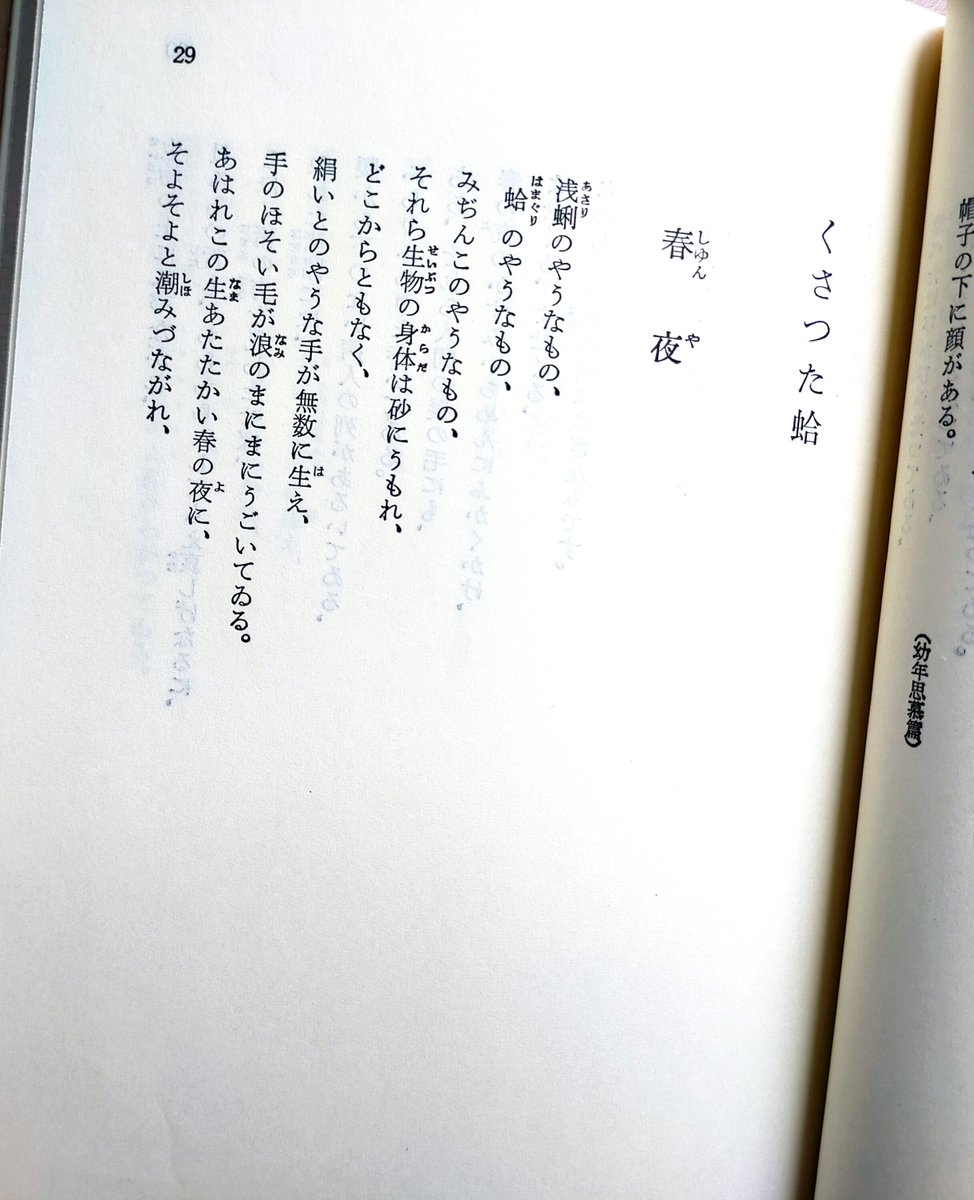 帽子の下に顔がある。
(幼年思慕篇)
くさつた蛤
春夜
しゆんや
浅蜊のやうなもの、
あさり
蛤のやうなもの、
はまぐり
みぢんこのやうなもの、
それら生物の身体は砂にうもれ、
せいぶつ からだ
どこからともなく、
絹いとのやうな手が無数に生え、
は
手のほそい毛が浪のまにまにうごいてゐる。
なみ
あはれこの生あたたかい春の夜に、
なま よ
そよそよと潮みづながれ、
しほ
29